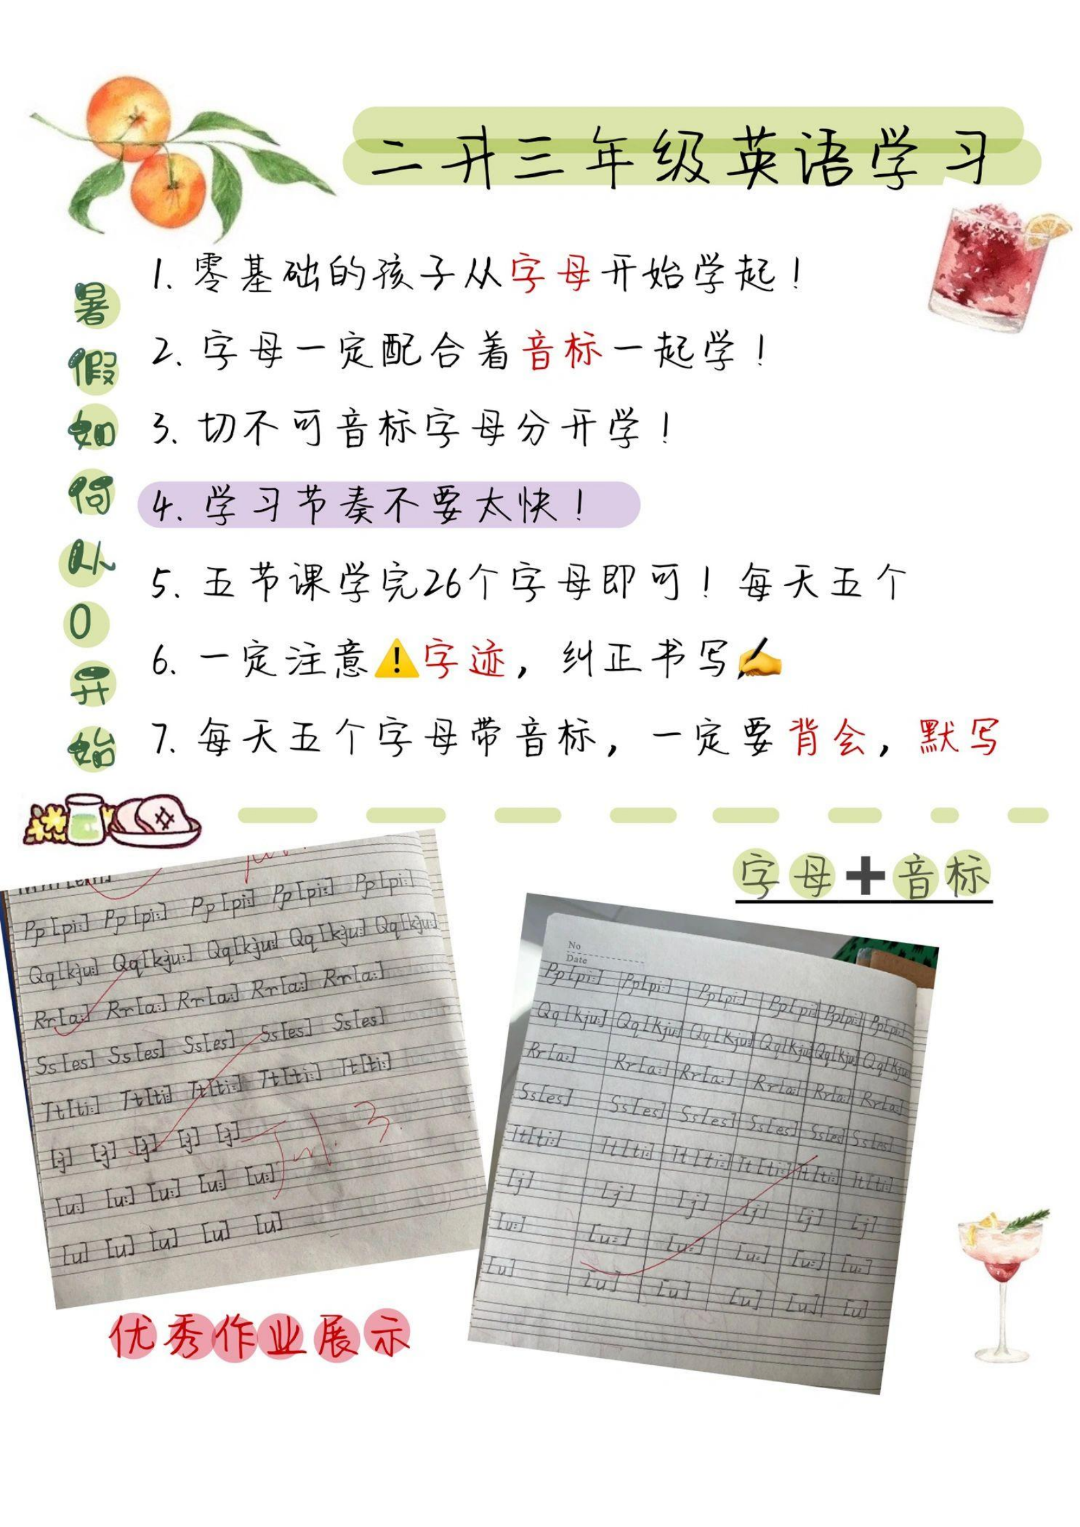 二升三年级英语学习
暑假如何从0开始
1. 零基础的孩子从字母开始学起！
2. 字母一定配合着音标一起学！
3. 切不可音标字母分开学！
4. 学习节奏不要太快！
5. 五节课学完26个字母即可！每天五个
6. 一定注意⚠️字迹，纠正书写✍️
7. 每天五个字母带音标，一定要背会，默写
字母➕音标
Pp[pi:] Pp[pi:] Pp[pi:] Pp[pi:] Pp[pi:]
Qq[kju:] Qq[kju:] Qq[kju:] Qq[kju:] Qq[kju:]
Rr[a:] Rr[a:] Rr[a:] Rr[a:] Rr[a:]
Ss[es] Ss[es] Ss[es] Ss[es] Ss[es]
Tt[ti:] Tt[ti:] Tt[ti:] Tt[ti:] Tt[ti:]
[j] [j] [j] [j] [j]
[u:] [u:] [u:] [u:] [u:]
[u] [u] [u] [u] [u]
No
Date
Pp[pi:] Pp[pi:] Pp[pi:] Pp[pi:] Pp[pi:] Pp[pi:]
Qq[kju:] Qq[kju:] Qq[kju:] Qq[kju:] Qq[kju:] Qq[kju:]
Rr[a:] Rr[a:] Rr[a:] Rr[a:] Rr[a:] Rr[a:]
Ss[es] Ss[es] Ss[es] Ss[es] Ss[es] Ss[es]
Tt[ti:] Tt[ti:] Tt[ti:] Tt[ti:] Tt[ti:] Tt[ti:]
[j] [j] [j] [j] [j] [j]
[u:] [u:] [u:] [u:] [u:] [u:]
[u] [u] [u] [u] [u] [u]
优秀作业展示